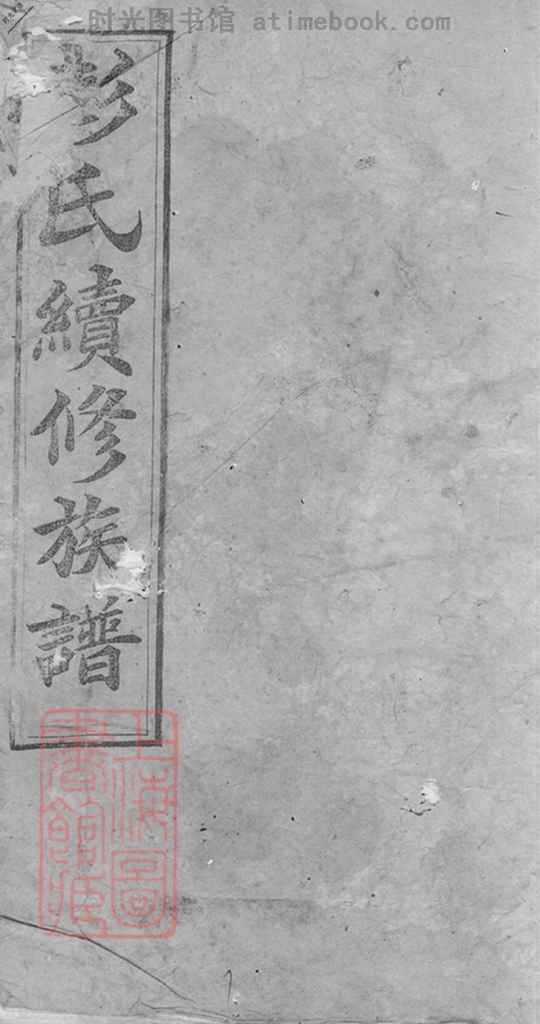 时光图书馆 atimebook.com
彭氏續修族譜
上海圖
書館藏